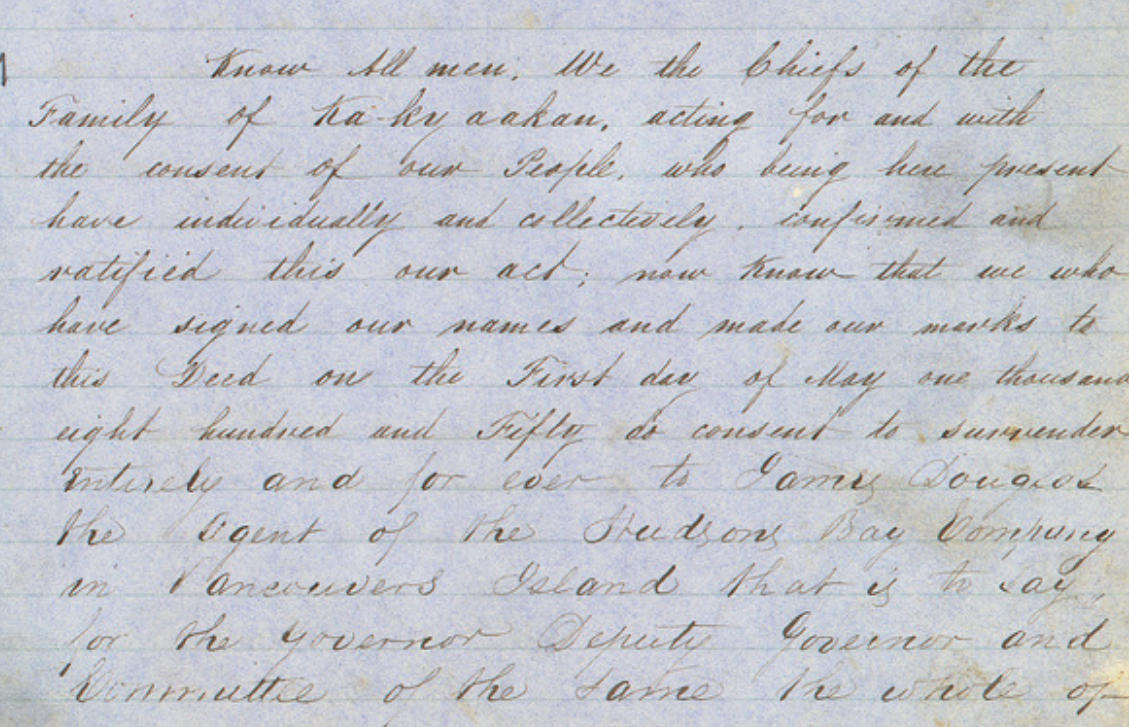 Know All men, We the Chiefs of the
Family of Ka-ky aakan, acting for and with
the consent of our People, who being here present
have individually and collectively, confirmed and
ratified this our act; now Know that we who
have signed our names and made our marks to
this Deed on the First day of May one thousand
eight hundred and Fifty do consent to surrender
Entirely and for ever to James Douglas
the Agent of the Hudsons Bay Company
in Vancouvers Island that is to say,
for the Governor Deputy Governor and
Committee of the same the whole of